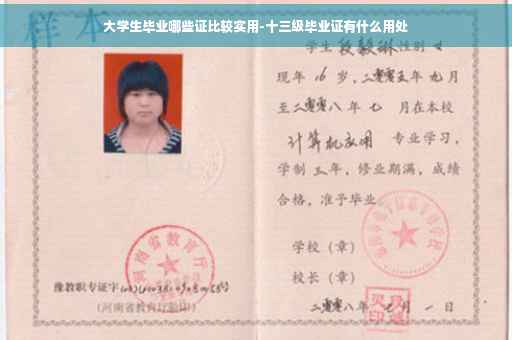 大学生毕业哪些证比较实用-十三级毕业证有什么用处
样本
学生 段毅琳 性别 女
现年 16 岁，二零零五年 九 月
至二零零八年 七 月在本校
计算机应用 专业学习，
学制 三 年，修业期满，成绩
合格，准予毕业。
学校（章）
校长（章）
河南省教育厅
豫教职专证字
（河南省教育厅验印）
二零零八年 七 月 一 日